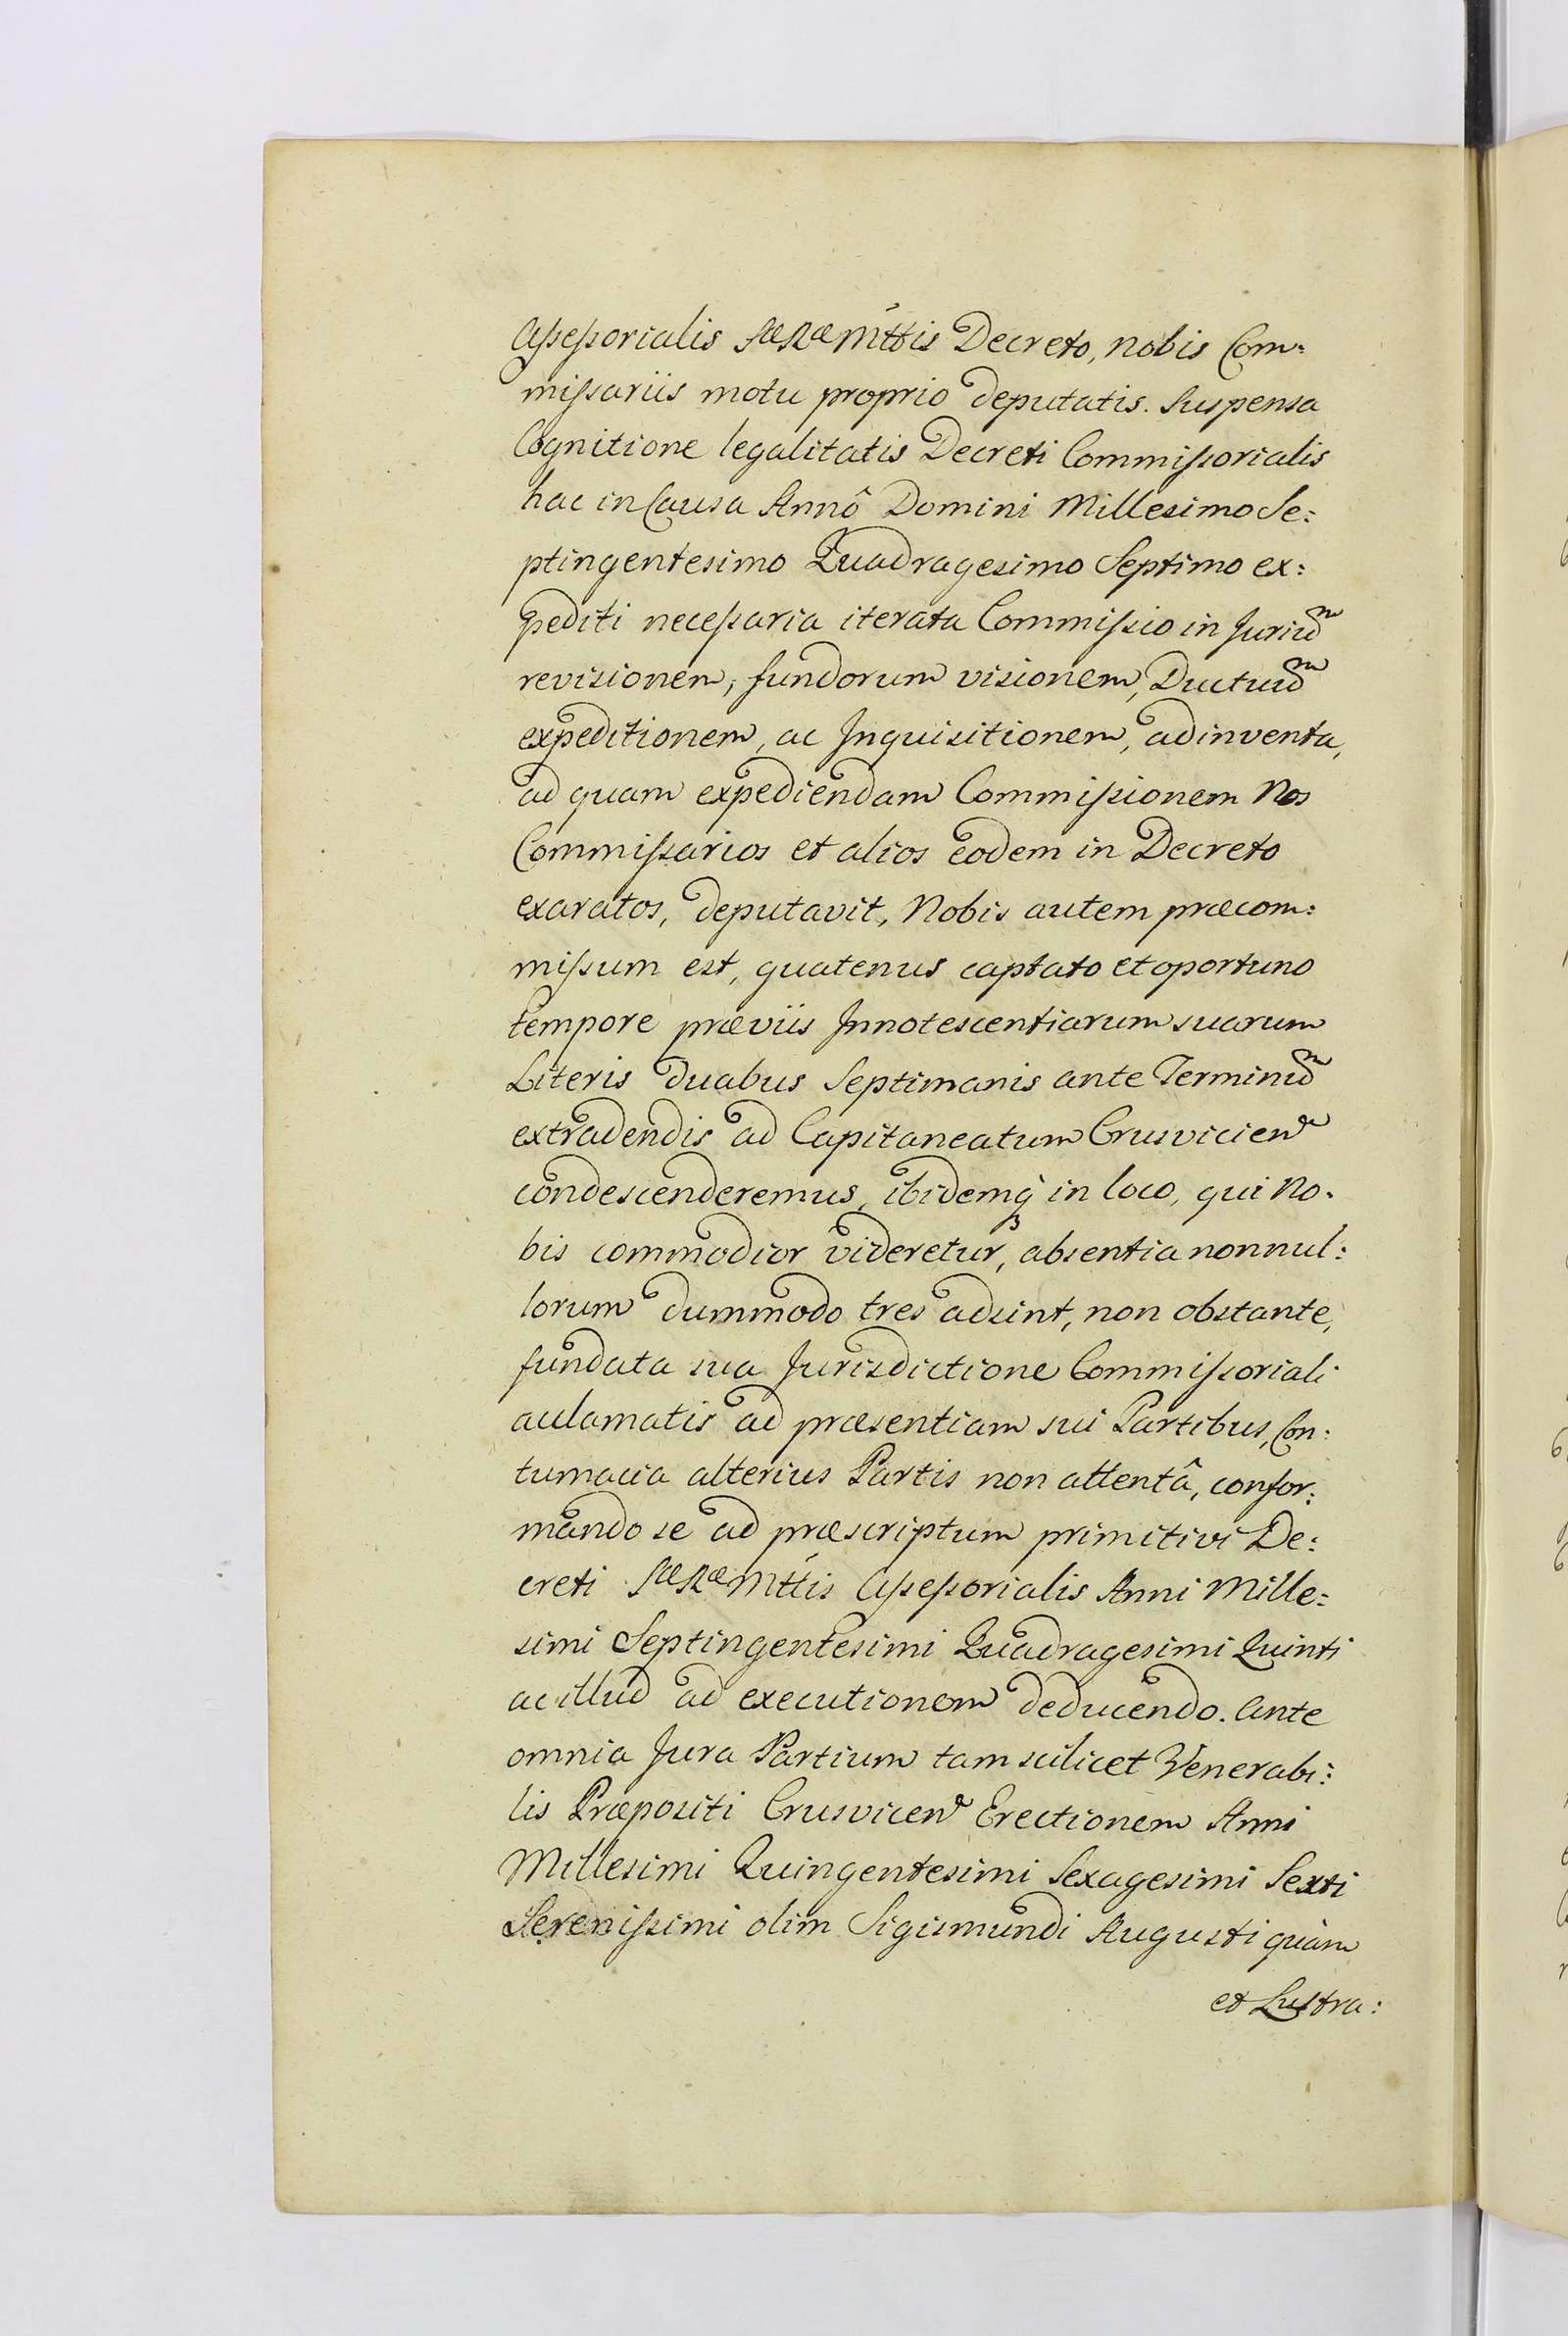 Aſseſsorialis Sæ Ræ Mttis Decreto, nobis Com:
miſsariis motu proprio deputatis. Suspensa
Cognitione legalitatis Decreti Commiſsorialis
hac in Causa Annô Domini Millesimo Se:
ptingentesimo Quadragesimo Septimo ex:
pediti neceſsaria iterata Commiſsio in Juriũm
revisionem, fundorum visionem, Ductuũm
expeditionem, ac Inquisitionem, adinventa,
ad quam expediendam Commiſsionem Nos
Commiſsarios et alios eodem in Decreto
exaratos, deputavit, Nobis autem præcom:
miſsum est, quatenus captato et oportuno
tempore præviis Innotescentiarum suarum
Literis duabus Septimanis ante Terminũm
extradendis ad Capitaneatum Crusvicien
condescenderemus, ibidemq̀ in loco, qui No.
bis commodior videretur, absentia nonnul:
lorum dummodo tres adsint, non obstante,
fundata sua Jurisdictione Commiſsoriali
acclamatis ad præsentiam sui Partibus, Con:
tumacia alterius Partis non attentâ, confor:
mando se ad præscriptum primitivi De:
creti Sæ Ræ Mttis Aſseſsorialis Anni Mille:
simi Septingentesimi Quadragesimi Quinti
ac illud ad executionem deducendo. Ante
omnia Jura Partium tam scilicet Venerabi:
lis Præpositi Crusvicen Erectionem Anni
Millesimi Quingentesimi Sexagesimi Sexti
Sereniſsimi olim Sigismundi Augusti quàm
et Lustra: